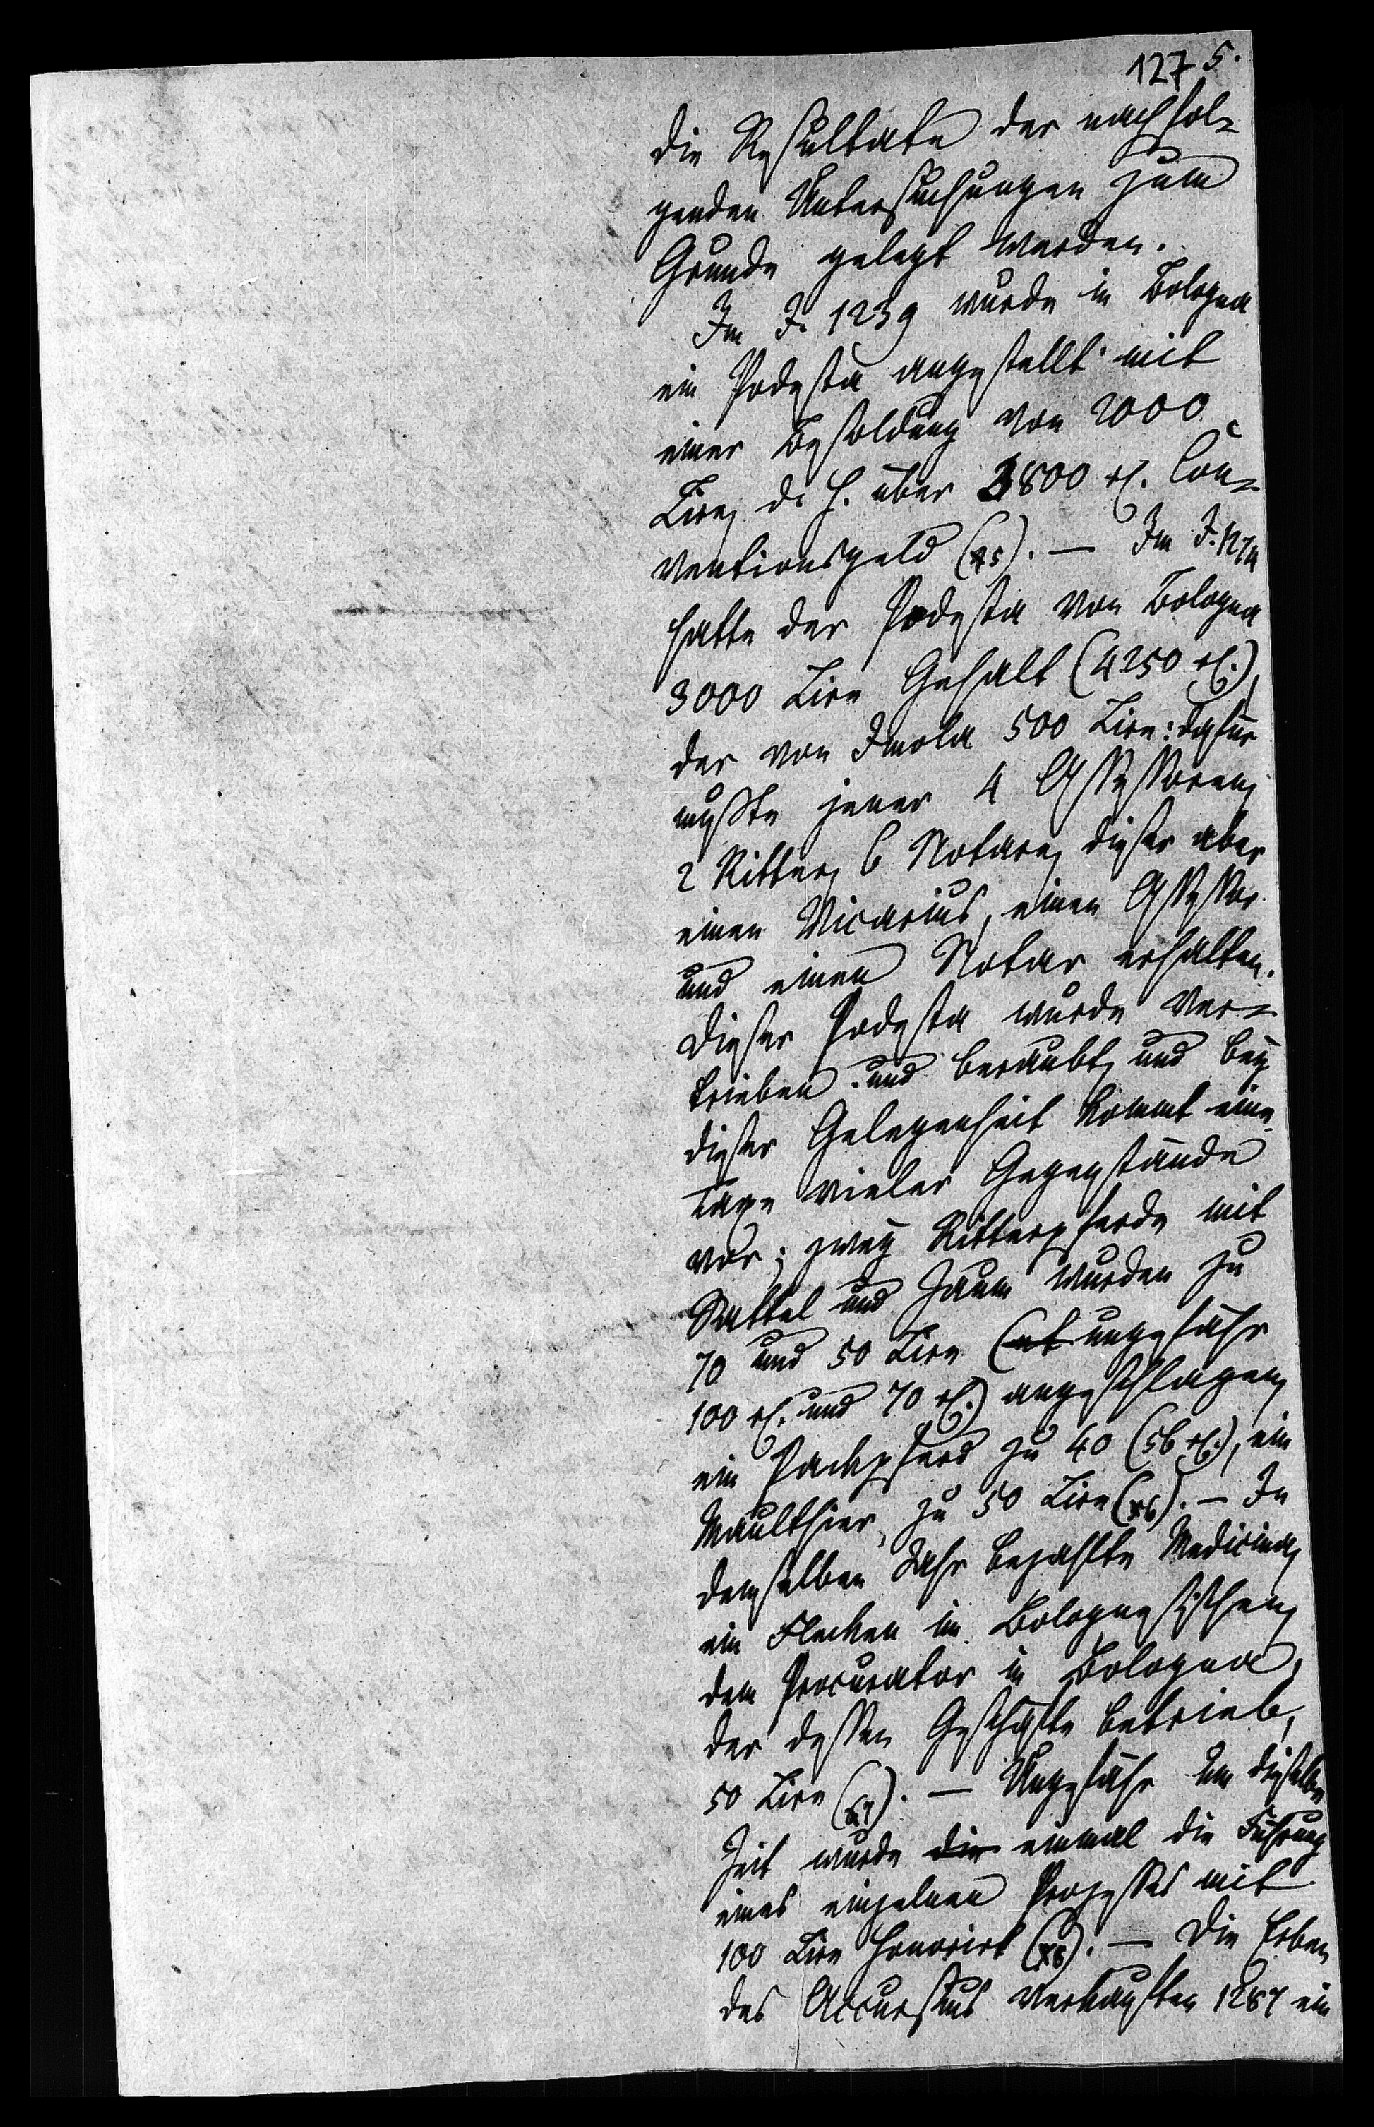 127 5.
die Resultate der nachfol-
genden Untersuchungen zum
Grunde gelegt werden.
Im J. 1239 wurde in Bologna
ein Podesta angestellt mit
einer Besoldung von 2000
Lire, d. h. über 2800 rt. Con-
ventionsgeld (x5). — Im J.
hatte der Podesta von Bologna
3000 Lire Gehalt (4250 rt.),
der von Imola 500 Lire: dafür
mußte jener 4 Assessoren,
2 Ritter, 6 Notare, dieser aber
einen Vicarius, einen Assessor
und einen Notar erhalten.
Dieser Podesta wurde ver-
trieben und beraubt, und bey
dieser Gelegenheit kommt eine
Taxe vieler Gegenstände
vor; zwey Ritterpferde mit
Sattel und Zaum wurden zu
70 und 50 Lire (ungefähr
100 rt. und 70 rt.) angeschlagen,
ein Packpferd zu 40 (56 rt.), ein
Maulthier, zu 50 Lire (x6). — In
demselben Jahr bezahlte Medicina,
ein Flecken im Bolognesischen,
dem Procurator in Bologna,
der dessen Geschäfte betrieb,
50 Lire (x7). — Ungefähr um dieselbe
Zeit wurde die einmal die Führung
eines einzelnen Prozesses mit
100 Lire honorirt (x8). — Die Erben
des Accursius verkauften 1287 ein